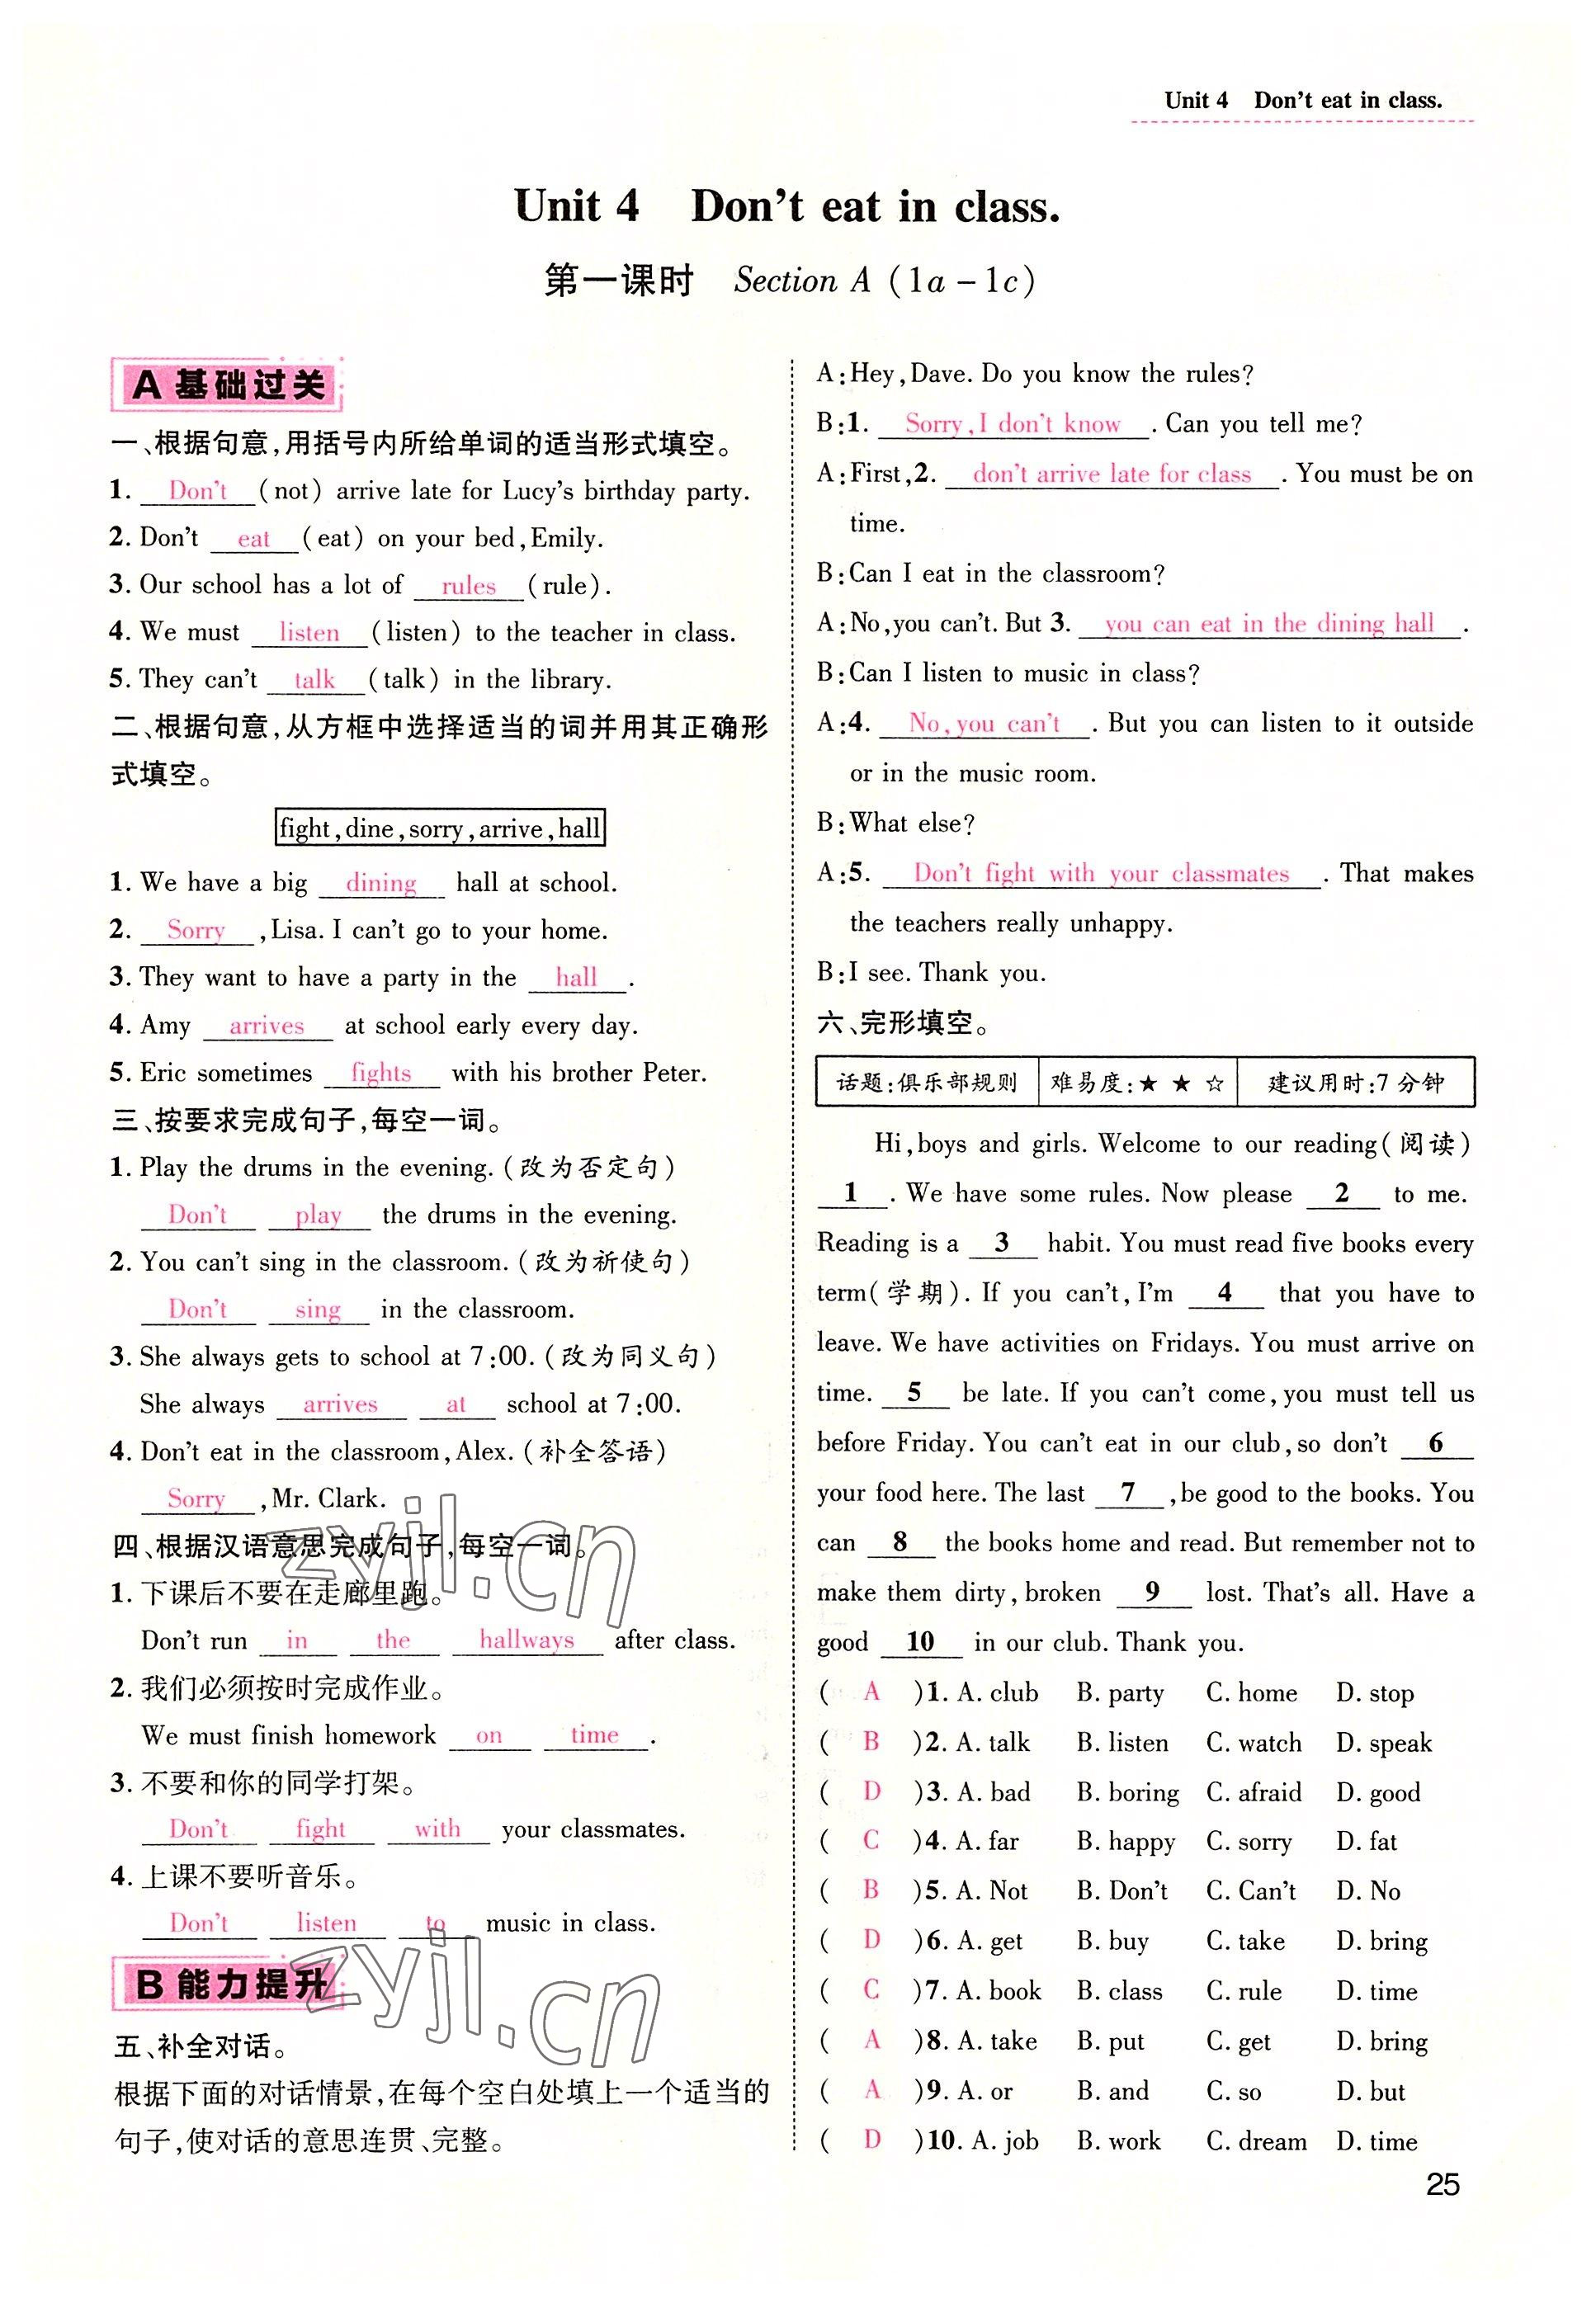 Unit 4 Don't eat in class.
Unit 4 Don't eat in class.
第一课时 Section A (1a－1c)
A 基础过关
一、根据句意,用括号内所给单词的适当形式填空。
1. Don't (not) arrive late for Lucy's birthday party.
2. Don't eat (eat) on your bed, Emily.
3. Our school has a lot of rules (rule).
4. We must listen (listen) to the teacher in class.
5. They can't talk (talk) in the library.
二、根据句意,从方框中选择适当的词并用其正确形
式填空。
fight, dine, sorry, arrive, hall
1. We have a big dining hall at school.
2. Sorry, Lisa. I can't go to your home.
3. They want to have a party in the hall.
4. Amy arrives at school early every day.
5. Eric sometimes fights with his brother Peter.
三、按要求完成句子,每空一词。
1. Play the drums in the evening. (改为否定句)
Don't play the drums in the evening.
2. You can't sing in the classroom. (改为祈使句)
Don't sing in the classroom.
3. She always gets to school at 7:00. (改为同义句)
She always arrives at school at 7:00.
4. Don't eat in the classroom, Alex. (补全答语)
Sorry, Mr. Clark.
四、根据汉语意思完成句子,每空一词。
1. 下课后不要在走廊里跑。
Don't run in the hallways after class.
2. 我们必须按时完成作业。
We must finish homework on time.
3. 不要和你的同学打架。
Don't fight with your classmates.
4. 上课不要听音乐。
Don't listen to music in class.
B 能力提升
五、补全对话。
根据下面的对话情景,在每个空白处填上一个适当的
句子,使对话的意思连贯、完整。
A: Hey, Dave. Do you know the rules?
B: 1. Sorry, I don't know. Can you tell me?
A: First, 2. don't arrive late for class. You must be on
time.
B: Can I eat in the classroom?
A: No, you can't. But 3. you can eat in the dining hall.
B: Can I listen to music in class?
A: 4. No, you can't. But you can listen to it outside
or in the music room.
B: What else?
A: 5. Don't fight with your classmates. That makes
the teachers really unhappy.
B: I see. Thank you.
六、完形填空。
话题:俱乐部规则 难易度:★ ★ ☆ 建议用时:7 分钟
Hi, boys and girls. Welcome to our reading(阅读)
1. We have some rules. Now please 2 to me.
Reading is a 3 habit. You must read five books every
term(学期). If you can't, I'm 4 that you have to
leave. We have activities on Fridays. You must arrive on
time. 5 be late. If you can't come, you must tell us
before Friday. You can't eat in our club, so don't 6
your food here. The last 7, be good to the books. You
can 8 the books home and read. But remember not to
make them dirty, broken 9 lost. That's all. Have a
good 10 in our club. Thank you.
( A )1. A. club B. party C. home D. stop
( B )2. A. talk B. listen C. watch D. speak
( D )3. A. bad B. boring C. afraid D. good
( C )4. A. far B. happy C. sorry D. fat
( B )5. A. Not B. Don't C. Can't D. No
( D )6. A. get B. buy C. take D. bring
( C )7. A. book B. class C. rule D. time
( A )8. A. take B. put C. get D. bring
( A )9. A. or B. and C. so D. but
( D )10. A. job B. work C. dream D. time
25
zyjl.cn
zyjl.cn